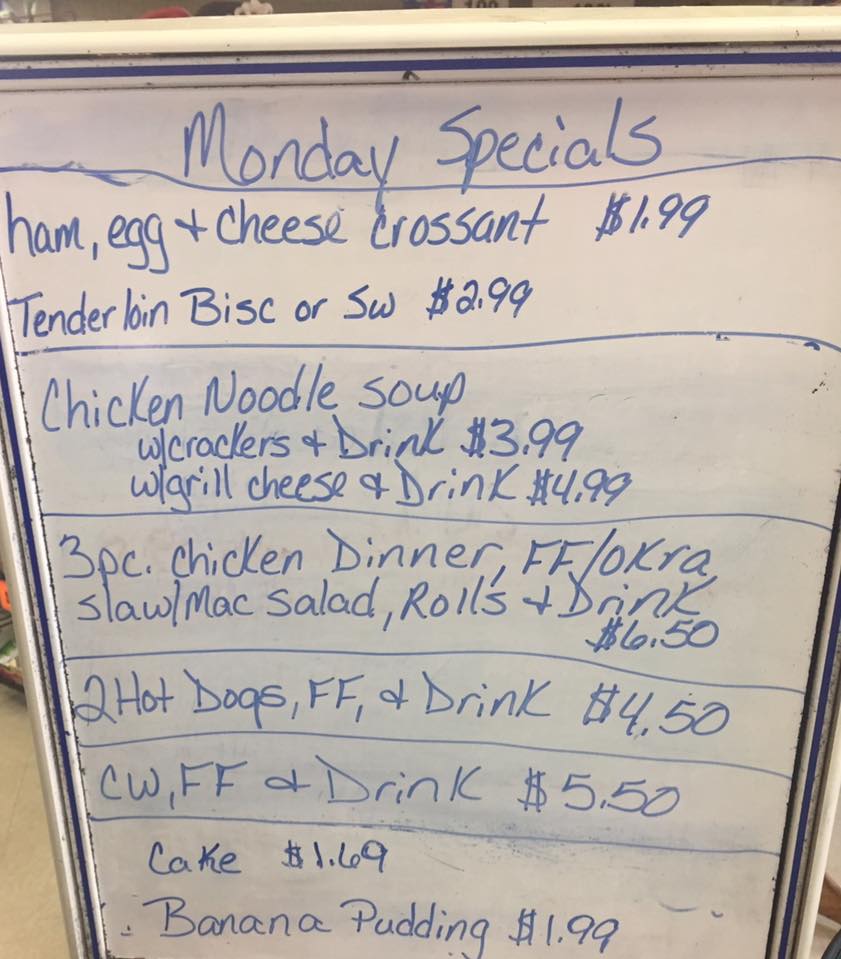 Monday Specials
ham, egg + cheese crossant $1.99
Tenderloin Bisc or Sw $2.99
Chicken Noodle Soup
w/crackers & Drink $3.99
w/grill cheese & Drink $4.99
3pc. chicken Dinner, FF/okra
slaw/Mac Salad, Rolls & Drink
$6.50
2 Hot Dogs, FF, & Drink $4.50
CW, FF & Drink $5.50
Cake $1.69
Banana Pudding $1.99